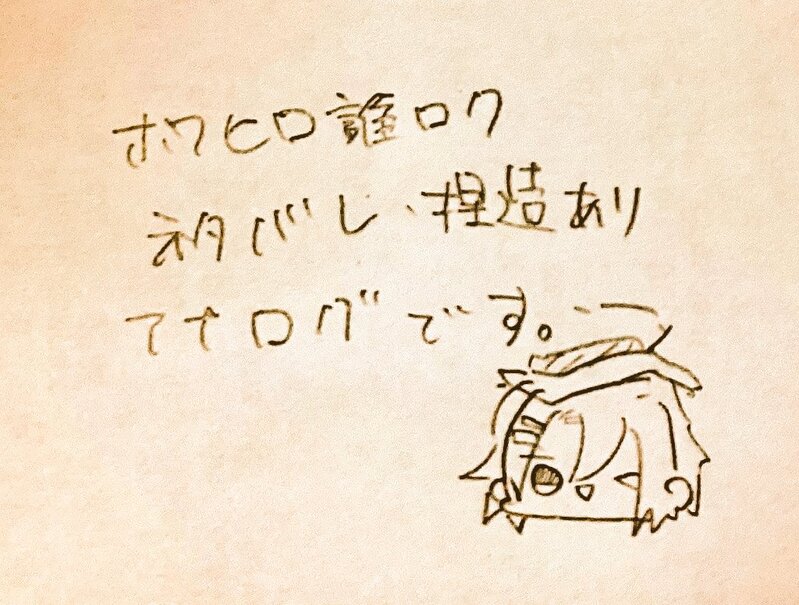 ホワヒロ誰ロク
ネタバレ、捏造あり
アナログです。